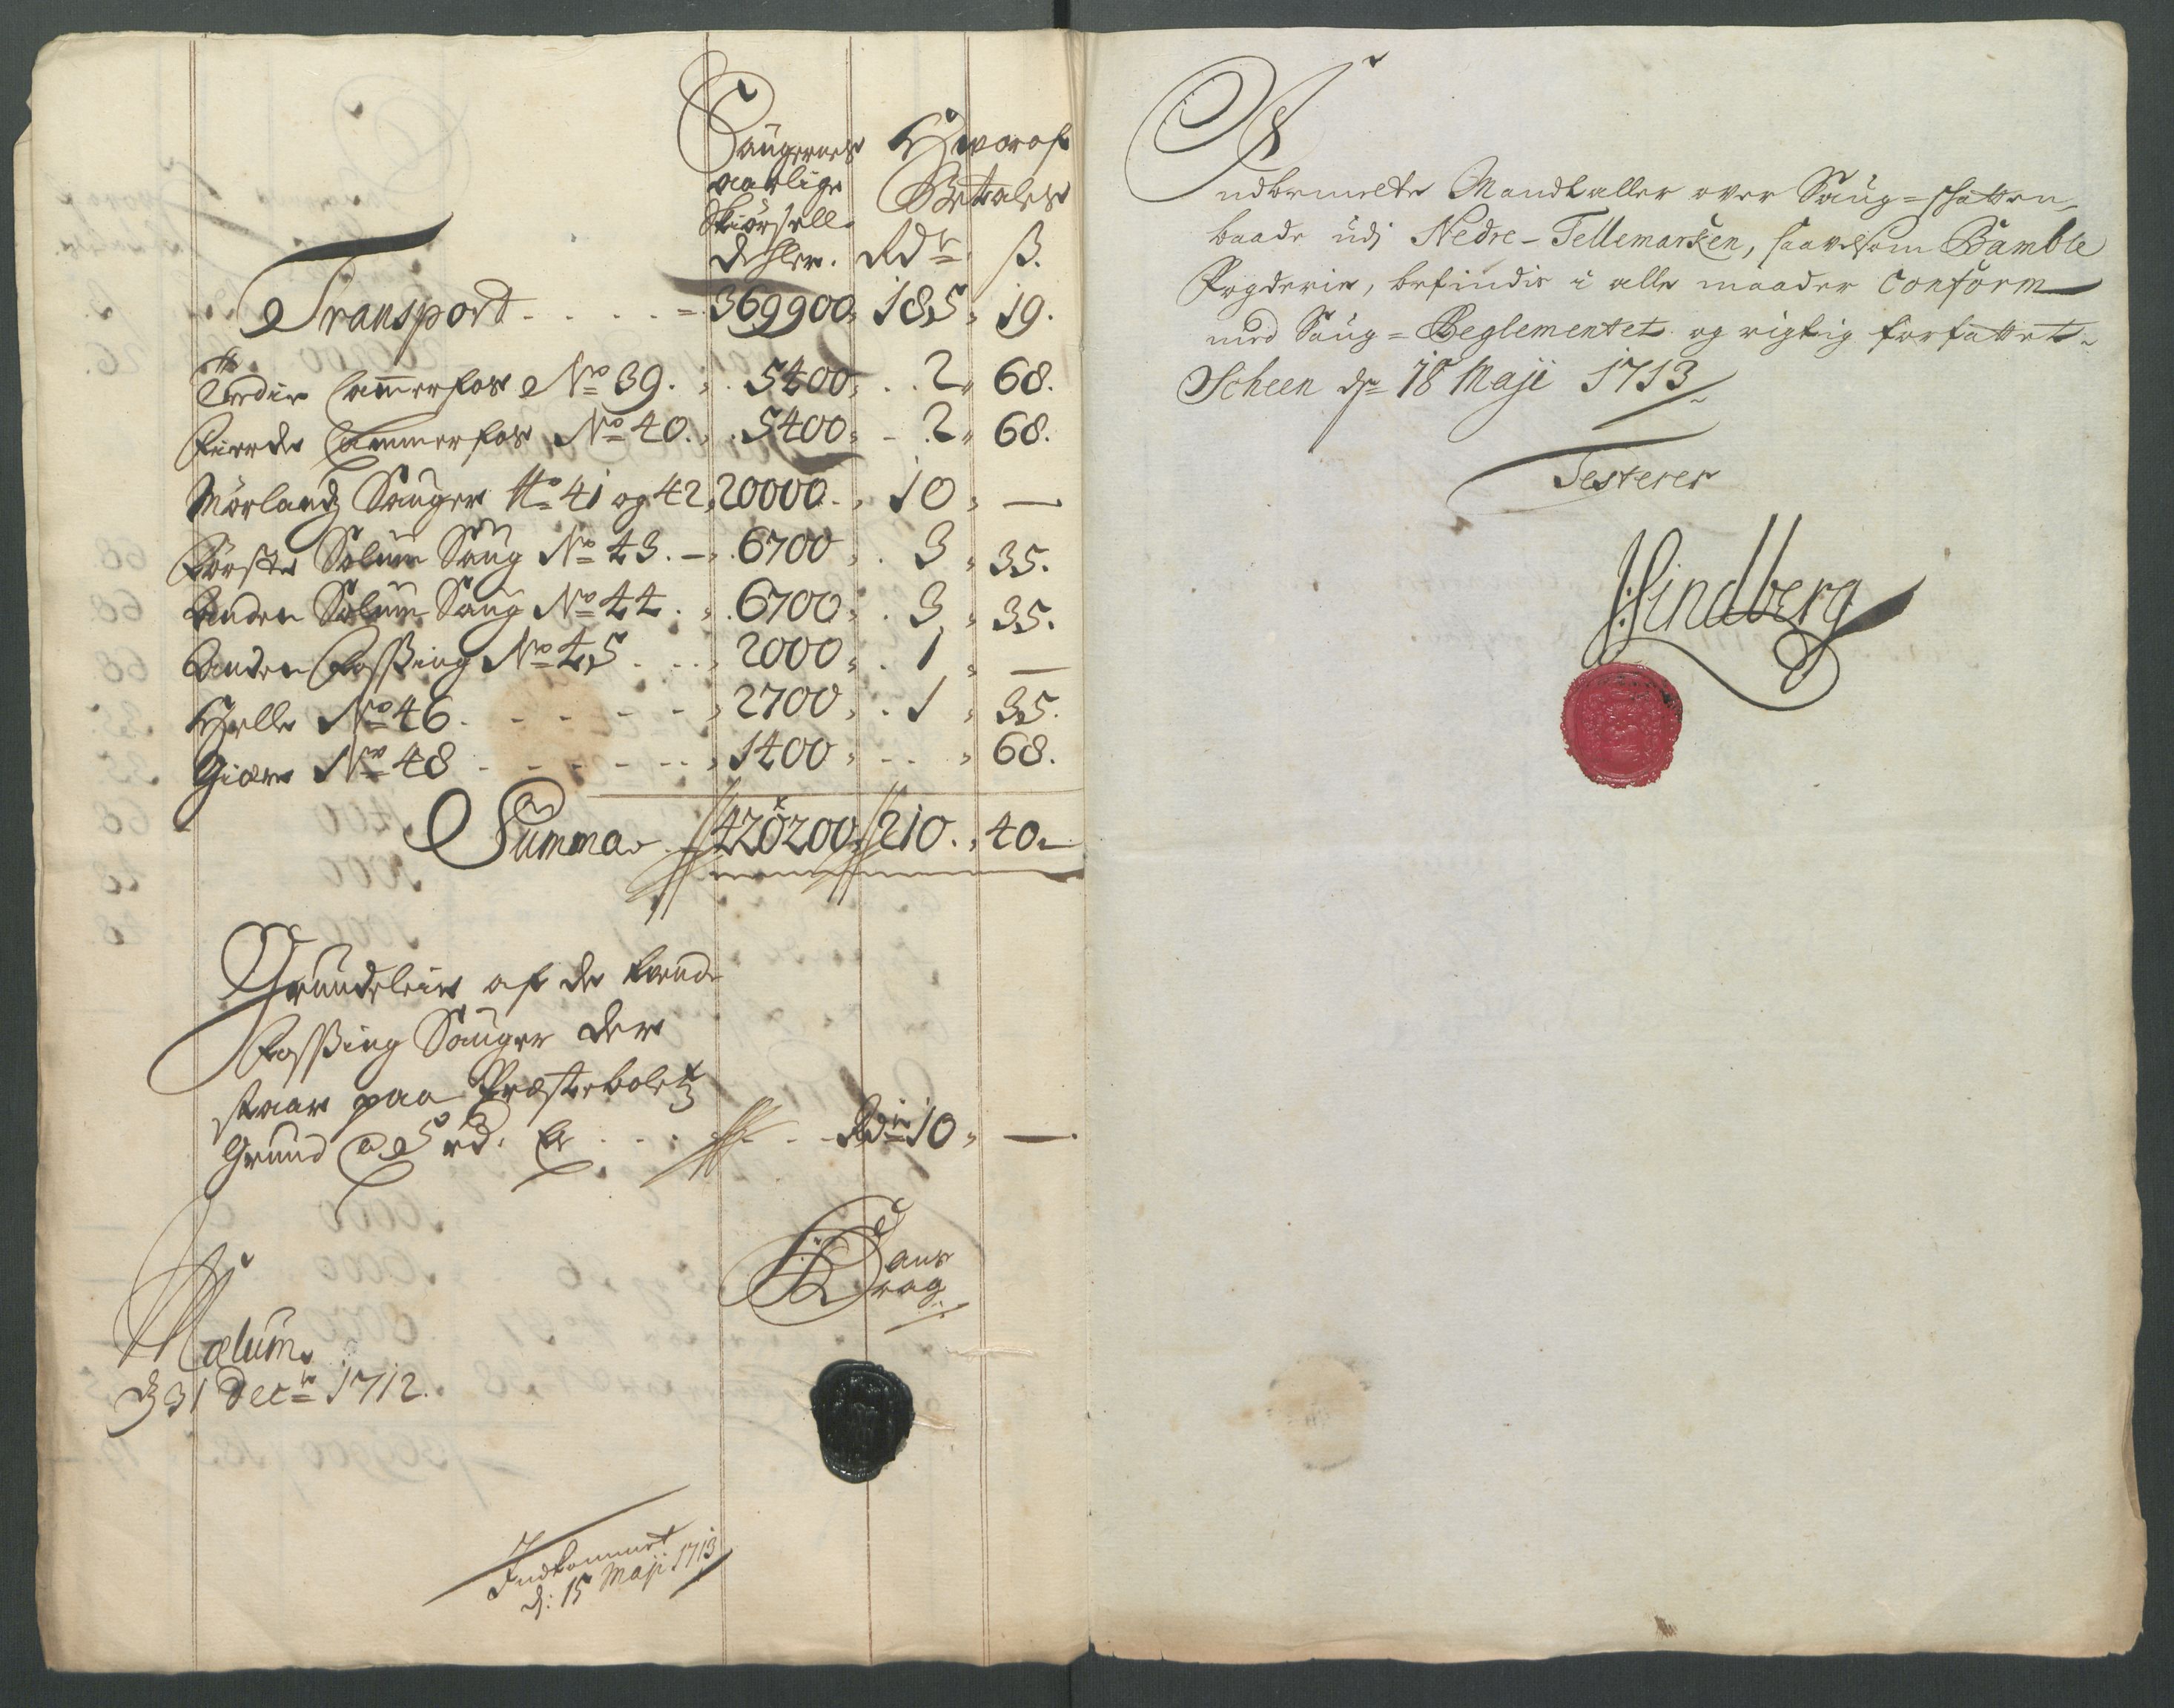 Saugernes Hvoraf
aarlige Betales
Skiørsell
dehler. Rdr ß.
Transport - . . . . = 369900, 185, 19.
Tredie Cammerfos No 39. , . 5400, . . 2, 68.
Fierde Cammerfos No 40. , . 5400, - . 2, 68.
Mørlandz Sauger No 41 og 42, 20000. , 10, —
Første Solum Saug No 43. —, . 6700, . 3, 35.
Anden Solum Saug No 44. , . 6700, . 3, 35.
Anden Fossing No 45 . . . , 2000, . 1, —
Helle No 46. - - - - - , 2700, . 1, 35.
No 48 - - - - - . . , 1400, - . . , 68.
Summa . 420200, 210. , 40.
Grundeleie af de tvende
Fossing Sauger der
staar paa Præsteboletz
Grund a 5 rd. er . . . . . - Rdr 10, —.
Hans
Krag
Mælum
d 31 Decr 1712.
Indkommet
d: 15 Maji 1713
Indbemelte Mandtaller over Saug=schatten,
baade udj Nedre-Tellemarken, saavelsom Bamble
Fogderie, befindis i alle maader Conform
med Saug=Reglementet og rigtig forfattet.
Scheen de 18 Maji 1713
Testerer
Lindberg